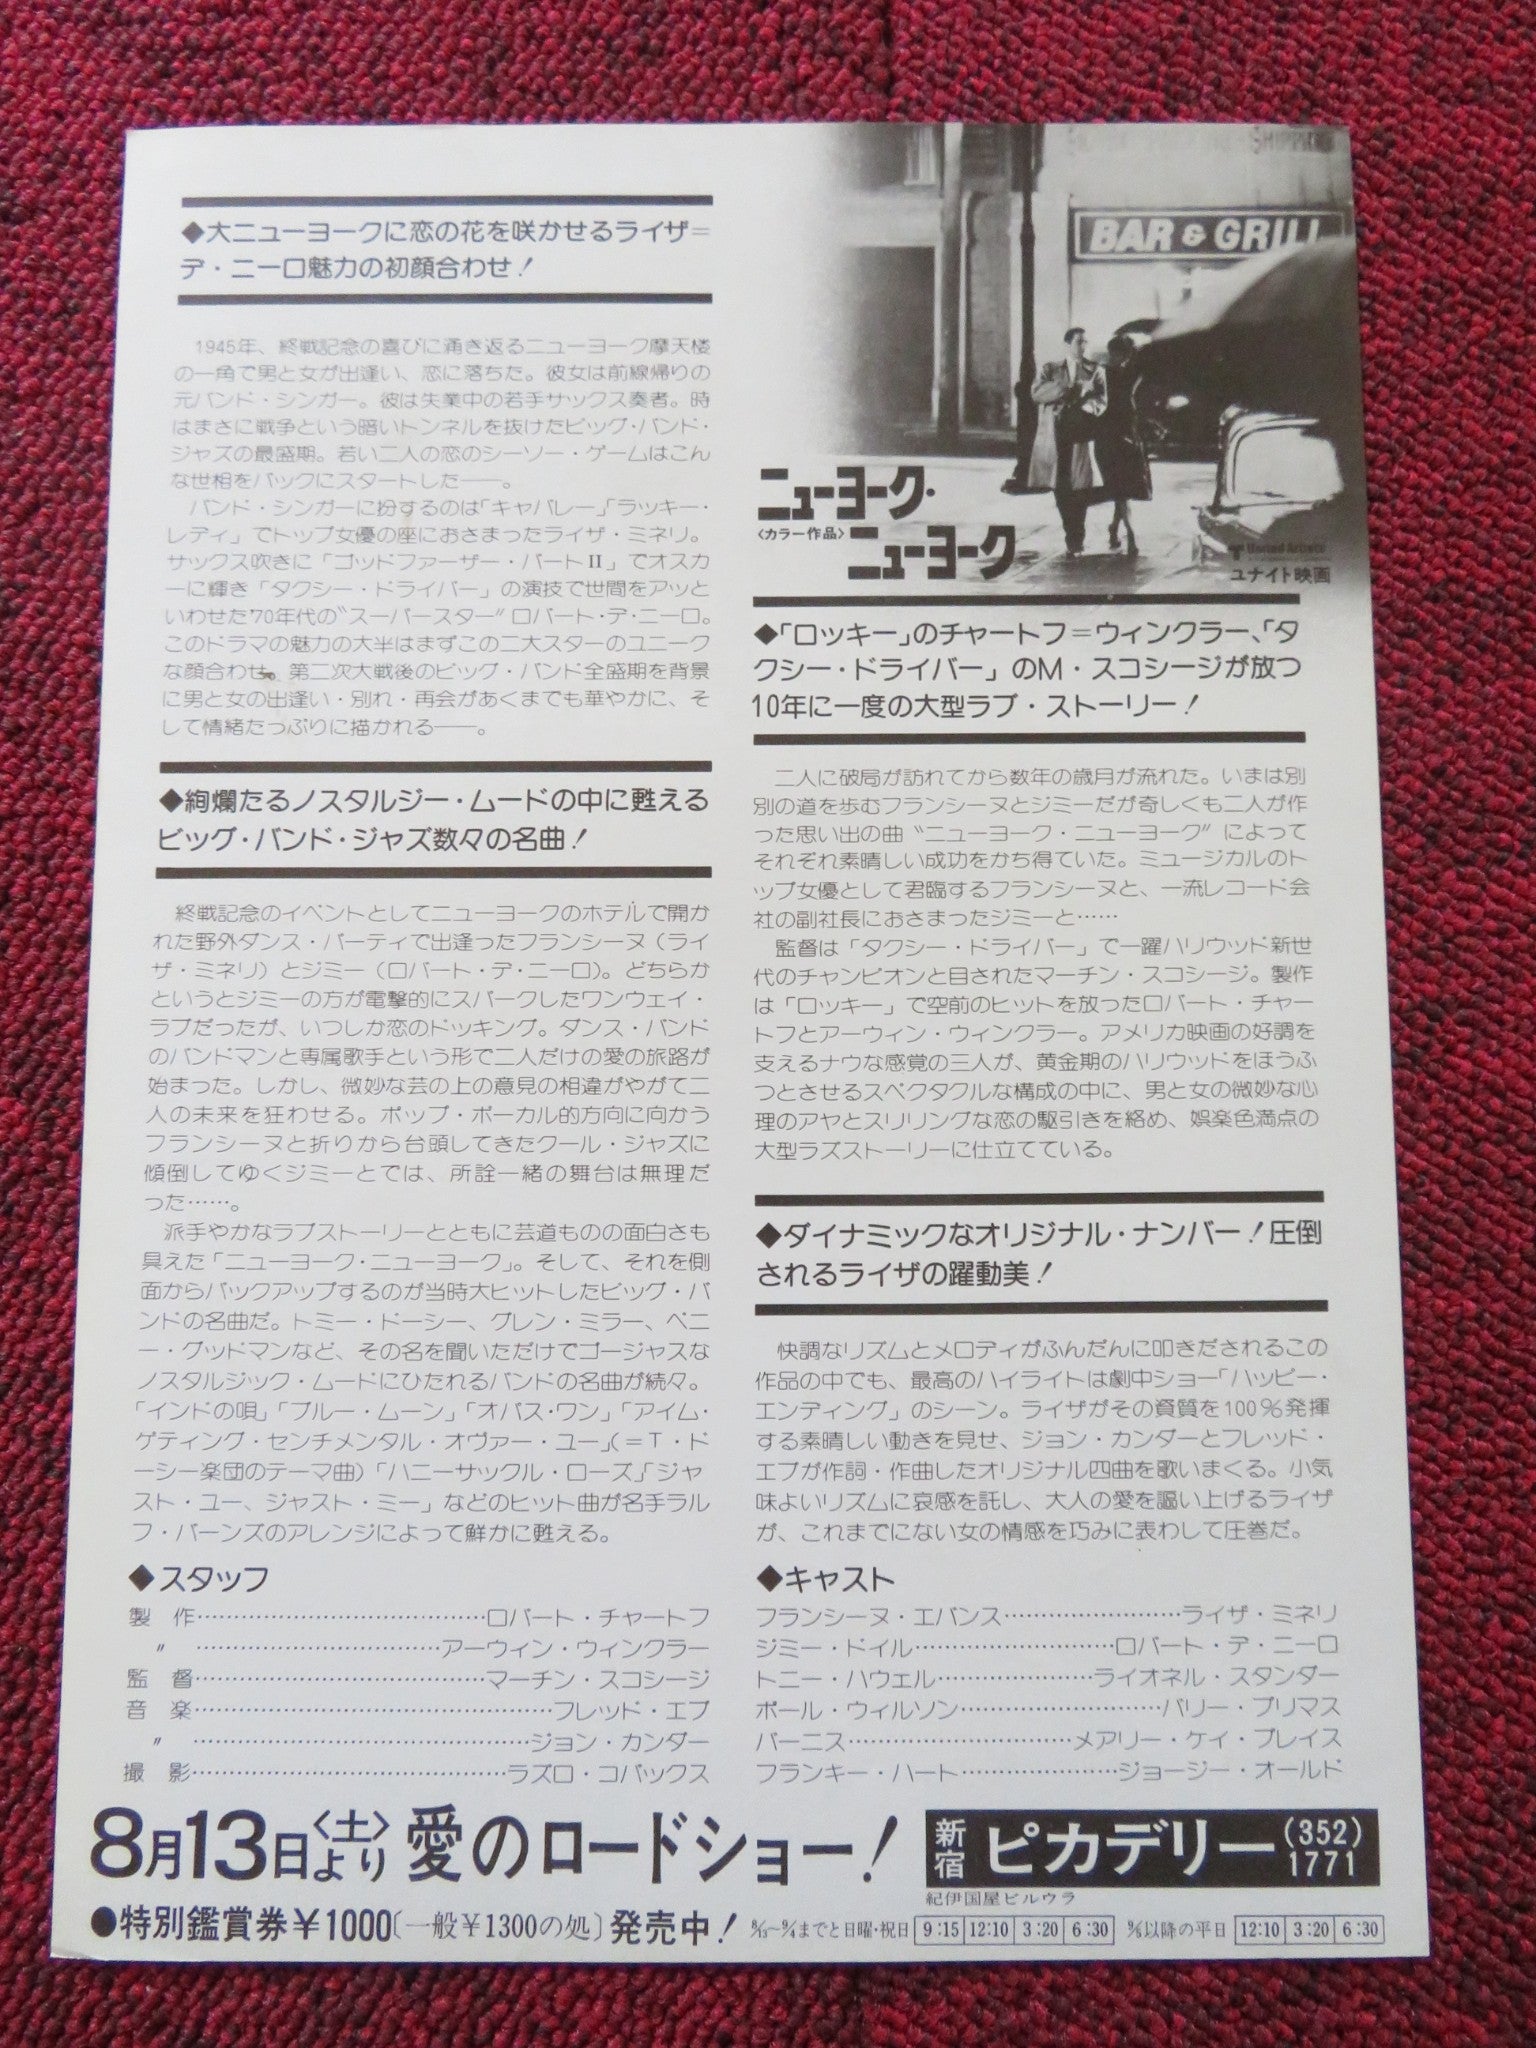 ◆大ニューヨークに恋の花を咲かせるライザ＝
デ・ニーロ魅力の初顔合わせ！
1945年、終戦記念の喜びに涌き返るニューヨーク摩天楼
の一角で男と女が出逢い、恋に落ちた。彼女は前線帰りの
元バンド・シンガー。彼は失業中の若手サックス奏者。時
はまさに戦争という暗いトンネルを抜けたビッグ・バンド・
ジャズの最盛期。若い二人の恋のシーソー・ゲームはこん
な世相をバックにスタートした――。
バンド・シンガーに扮するのは「キャバレー」「ラッキー・
レディ」でトップ女優の座におさまったライザ・ミネリ。
サックス吹きに「ゴッドファーザー・パートⅡ」でオスカ
ーに輝き「タクシー・ドライバー」の演技で世間をアッと
いわせた'70年代の〝スーパースター〟ロバート・デ・ニーロ。
このドラマの魅力の大半はまずこの二大スターのユニーク
な顔合わせ。第二次大戦後のビッグ・バンド全盛期を背景
に男と女の出逢い・別れ・再会があくまでも華やかに、そ
して情緒たっぷりに描かれる――。
◆絢爛たるノスタルジー・ムードの中に甦える
ビッグ・バンド・ジャズ数々の名曲！
終戦記念のイベントとしてニューヨークのホテルで開か
れた野外ダンス・パーティで出逢ったフランシーヌ（ライ
ザ・ミネリ）とジミー（ロバート・デ・ニーロ）。どちらか
というとジミーの方が電撃的にスパークしたワンウェイ・
ラブだったが、いつしか恋のドッキング。ダンス・バンド
のバンドマンと専属歌手という形で二人だけの愛の旅路が
始まった。しかし、微妙な芸の上の意見の相違がやがて二
人の未来を狂わせる。ポップ・ボーカル的方向に向かう
フランシーヌと折りから台頭してきたクール・ジャズに
傾倒してゆくジミーとでは、所詮一緒の舞台は無理だ
った……。
派手やかなラブストーリーとともに芸道ものの面白さも
具えた「ニューヨーク・ニューヨーク」。そして、それを側
面からバックアップするのが当時大ヒットしたビッグ・バ
ンドの名曲だ。トミー・ドーシー、グレン・ミラー、ベニ
ー・グッドマンなど、その名を聞いただけでゴージャスな
ノスタルジック・ムードにひたれるバンドの名曲が続々。
「インドの唄」「ブルー・ムーン」「オパス・ワン」「アイム・
ゲティング・センチメンタル・オヴァー・ユー」（＝Ｔ・ド
ーシー楽団のテーマ曲）「ハニーサックル・ローズ」「ジャ
スト・ユー、ジャスト・ミー」などのヒット曲が名手ラル
フ・バーンズのアレンジによって鮮かに甦える。
◆スタッフ
製　作……………………………ロバート・チャートフ
〃　……………………アーウィン・ウィンクラー
監　督……………………………マーチン・スコシージ
音　楽……………………………………フレッド・エブ
〃　……………………………………ジョン・カンダー
撮　影………………………………ラズロ・コバックス
BAR & GRILL
ニューヨーク・
〈カラー作品〉
ニューヨーク
United Artists
ユナイト映画
◆「ロッキー」のチャートフ＝ウィンクラー、「タ
クシー・ドライバー」のM・スコシージが放つ
10年に一度の大型ラブ・ストーリー！
二人に破局が訪れてから数年の歳月が流れた。いまは別
別の道を歩むフランシーヌとジミーだが奇しくも二人が作
った思い出の曲〝ニューヨーク・ニューヨーク〟によって
それぞれ素晴しい成功をかち得ていた。ミュージカルのト
ップ女優として君臨するフランシーヌと、一流レコード会
社の副社長におさまったジミーと……
監督は「タクシー・ドライバー」で一躍ハリウッド新世
代のチャンピオンと目されたマーチン・スコシージ。製作
は「ロッキー」で空前のヒットを放ったロバート・チャー
トフとアーウィン・ウィンクラー。アメリカ映画の好調を
支えるナウな感覚の三人が、黄金期のハリウッドをほうふ
つとさせるスペクタクルな構成の中に、男と女の微妙な心
理のアヤとスリリングな恋の駆引きを絡め、娯楽色満点の
大型ラズストーリーに仕立てている。
◆ダイナミックなオリジナル・ナンバー！圧倒
されるライザの躍動美！
快調なリズムとメロディがふんだんに叩きだされるこの
作品の中でも、最高のハイライトは劇中ショー「ハッピー・
エンディング」のシーン。ライザがその資質を100％発揮
する素晴しい動きを見せ、ジョン・カンダーとフレッド・
エブが作詞・作曲したオリジナル四曲を歌いまくる。小気
味よいリズムに哀感を託し、大人の愛を謳い上げるライザ
が、これまでにない女の情感を巧みに表わして圧巻だ。
◆キャスト
フランシーヌ・エバンス…………………ライザ・ミネリ
ジミー・ドイル……………………ロバート・デ・ニーロ
トニー・ハウェル………………ライオネル・スタンダー
ポール・ウィルソン……………………バリー・プリマス
バーニス………………………メアリー・ケイ・プレイス
フランキー・ハート………………ジョージー・オールド
8月13日〈土〉より 愛のロードショー！
新宿 ピカデリー (352)1771
紀伊国屋ビルウラ
●特別鑑賞券￥1000〔一般￥1300の処〕発売中！
8/13〜9/4までと日曜・祝日 9:15 12:10 3:20 6:30 9/5以降の平日 12:10 3:20 6:30